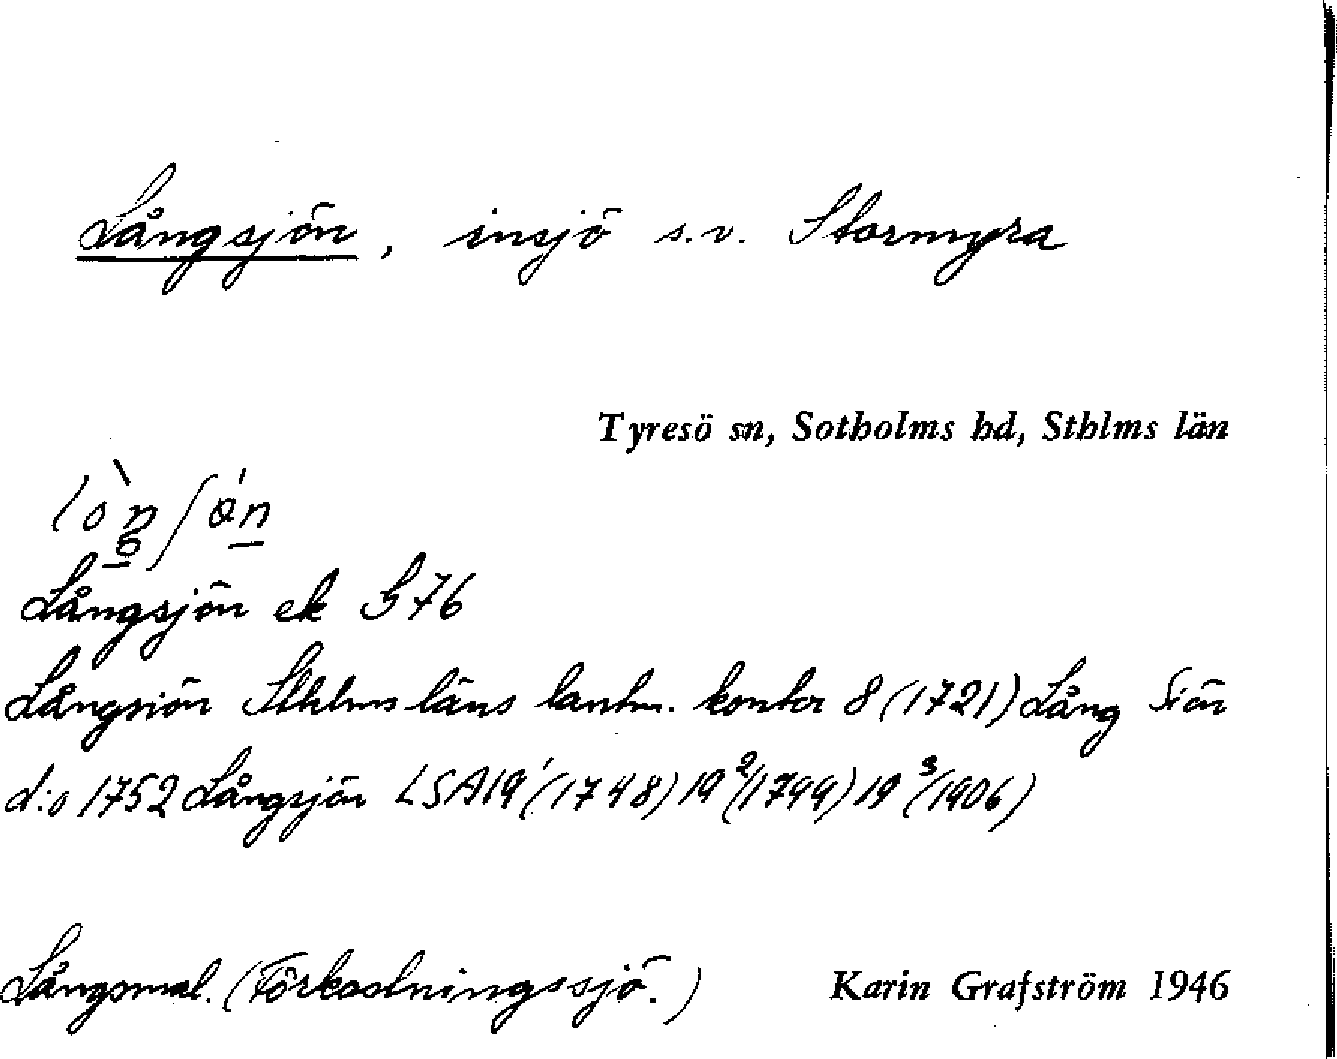 Långsjön, insjö s.v. Stormyra
Tyresö sn, Sotholms hd, Sthlms län
Långsjön ek G 76
Långsiön Sthlms läns lantm. kontor 8 (1721) Lång Siön
d:o 1752 Långsjön LSA19¹(1748) 19²(1799) 19³(1906)
Långsmal. (Förkastningssjö.)
Karin Grafström 1946